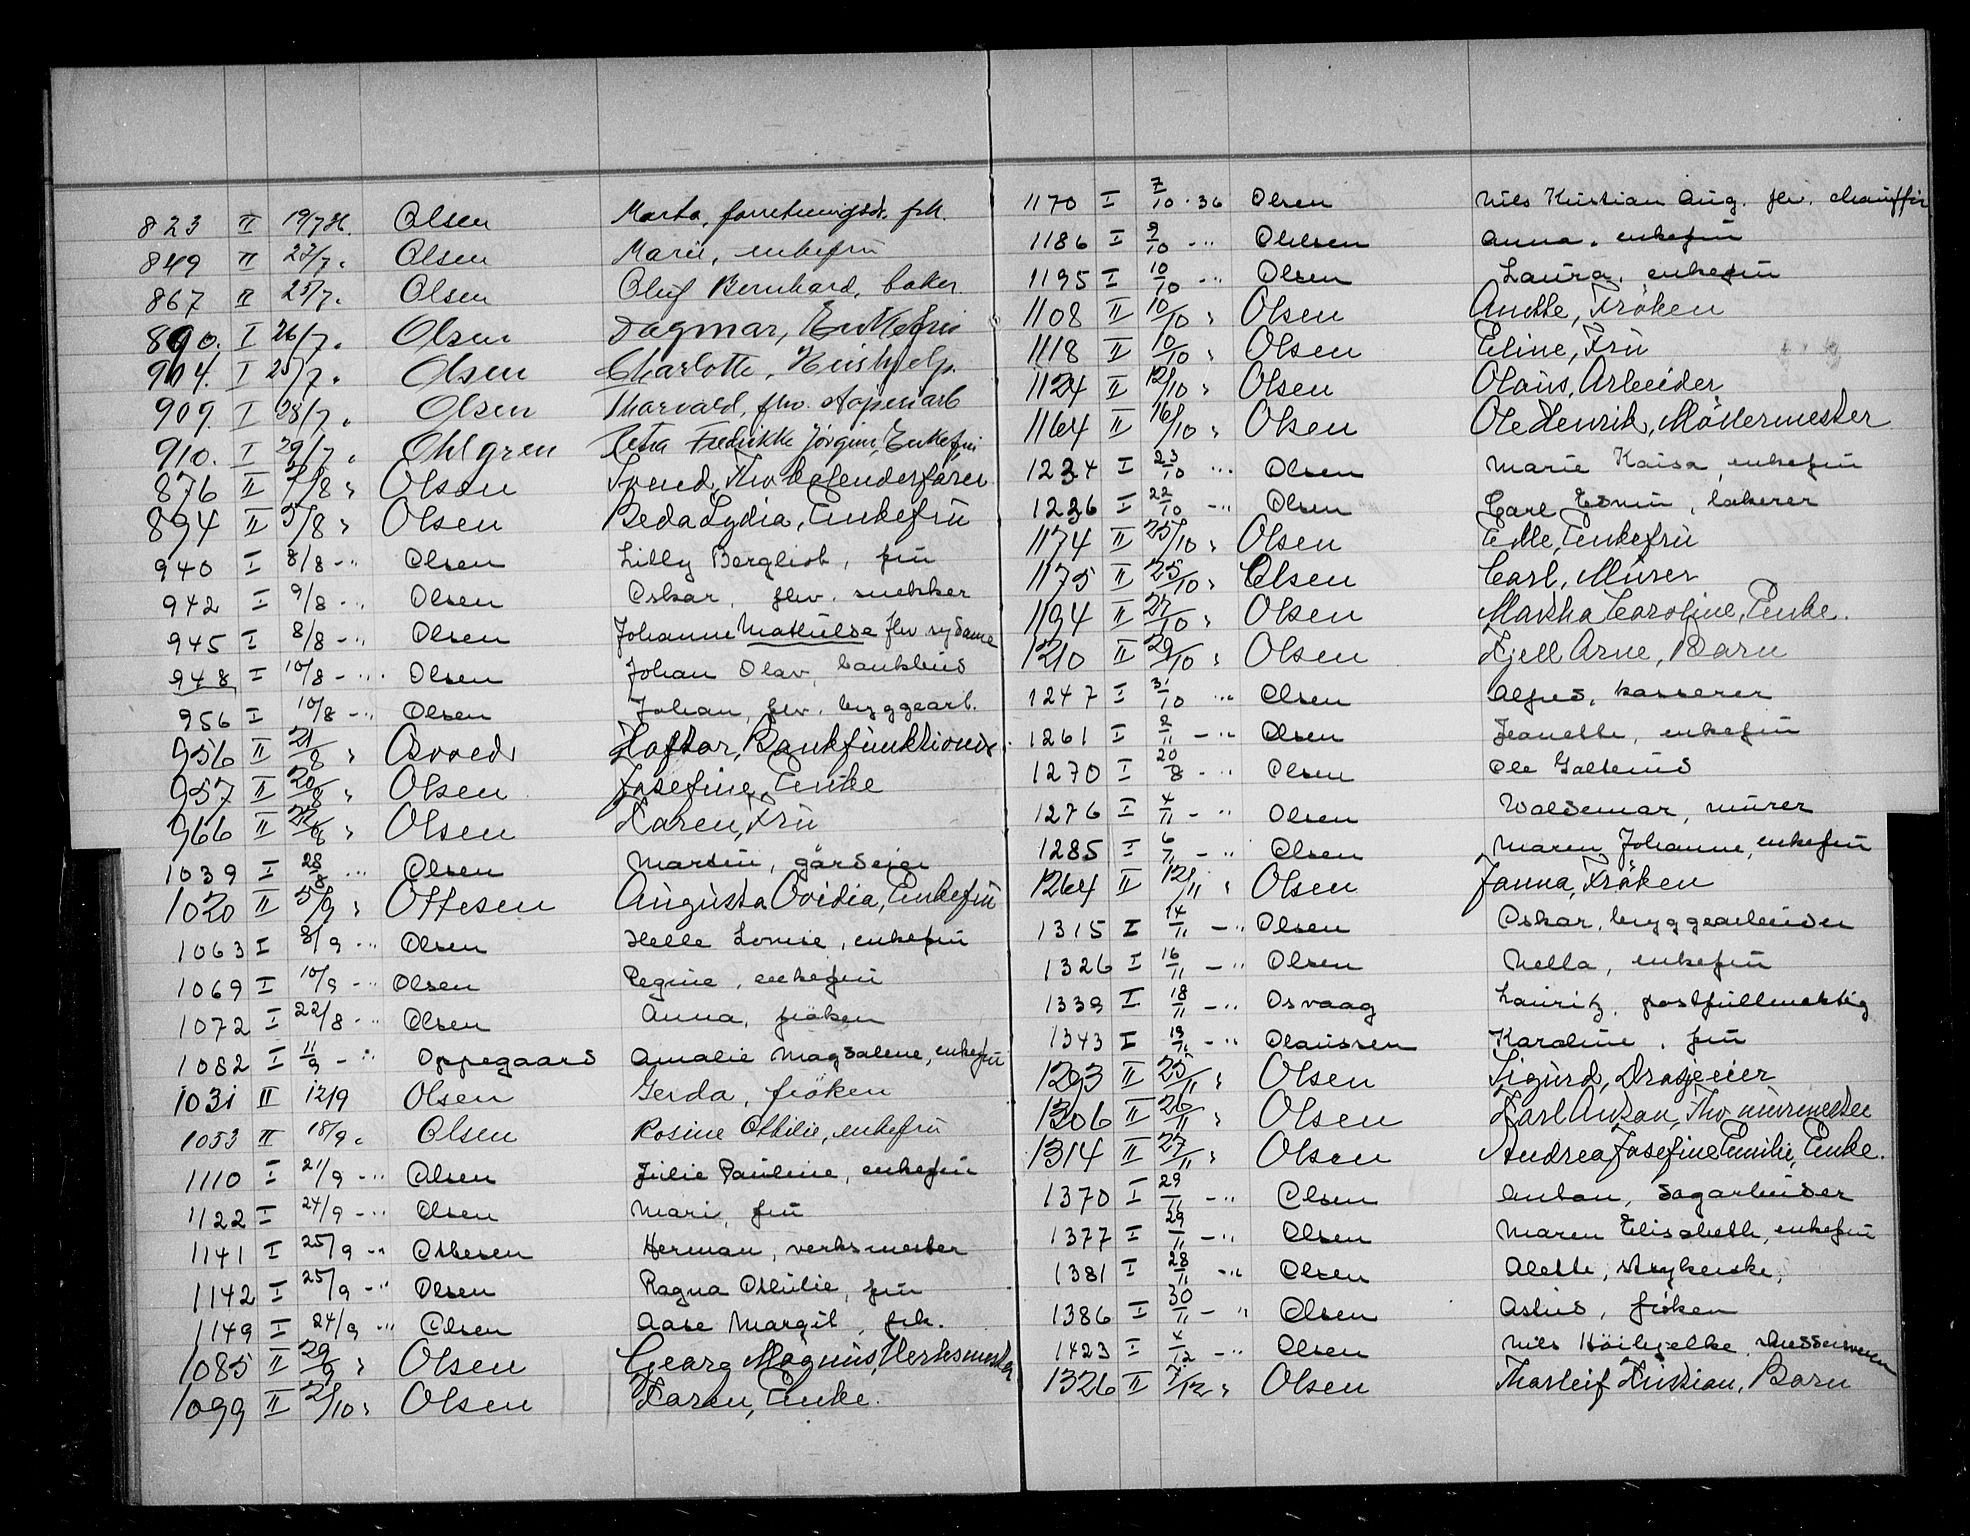 823 II 19/7 36. Olsen Marta, forretningsdr. frk.
849 II 23/7. Olsen Marie, enkefrü
867 II 25/7. Olsen Oluf Bernhard, baker.
890. I 26/7. Olsen Dagmar, Enkefrü
904. I 25/7. Olsen Charlotte, Hüshjelp.
909. I 28/7. Olsen Thorvald, fhv.
910. I 29/7. Ohlgren Petra Fredrikke Jörgine, Enkefrü
876 II /8 " Olsen Svend, Fhv
894 II 5/8 " Olsen Beda Lydia, Enkefrü
940 I 8/8 -" Olsen Lilly Bergliot, frü
942 I 9/8 -" Olsen Oskar, fhv. snekker
945 I 8/8 -" Olsen Johanne Mathilde fhv. sydame
948 I 10/8 -" Olsen Johan Olav, bankbüd
956 I 10/8 -" Olsen Johan, fhv. byggearb.
956 II 21/8 " Osvold Haftor, Bankfünktionær.
957 II 20/8 " Olsen Josefine, Enke
966 II 22/8 " Olsen Karen, Frü
1039 I 28/8 -" Olsen Martin, gårdeier
1020 II 5/9 " Ottesen Augusta Ovidia, Enkefrü
1063 I 8/9 -" Olsen Helle Louise, enkefrü
1069 I 10/9 -" Olsen Regine, enkefrü
1072 I 22/8 -" Olsen Anna, fröken
1082 I 11/9 -" Oppegaard Amalie Magdalene, enkefrü
1031 II 12/9 Olsen Gerda, fröken
1053 II 18/9. Olsen Rosine Othilie, enkefrü
1110 I 21/9 -" Olsen Jülie Pauline, enkefrü
1122 I 24/9 -" Olsen Mari, frü
1141 I 25/9 -" Ottesen Herman, verksmester
1142 I 25/9 -" Olsen Ragna Othilie, frü
1149 I 24/9 -" Olsen Aase Margit, frk.
1085 II 29/9 " Olsen Georg Magnus, Verksmester
1099 II 2/10 " Olsen Karen, Enke.
1170 I 7/10 - 36 Olsen Nils Kristian Aug. fhv. chauffør
1186 I 9/10 -" Olelsen Anna, enkefrü
1195 I 10/10 -" Olsen Laura, enkefrü
1108 II 10/10 " Olsen Anette, Fröken
1118 II 10/10 " Olsen Eline, Frü
1124 II 12/10 " Olsen Olaüs, Arbeider
1164 II 16/10 " Olsen Ole Henrik, Möllermester
1234 I 23/10 -" Olsen Marie Kaisa, enkefrü
1236 I 22/10 -" Olsen Carl Edvin, lakerer
1174 II 25/10 " Olsen Edle, Enkefrü
1175 II 25/10 " Olsen Carl, Mürer
1194 II 27/10 " Olsen Martha Caroline, Enke.
1210 II 29/10 " Olsen Kjell Arne, Barn
1247 I 31/10 -" Olsen Alfred, kasserer
1261 I 2/11 -" Olsen Jeanette, enkefrü
1270 I 20/8 -" Olsen Ole Galtenüs
1276 I 4/11 -" Olsen Waldemar, mürer
1285 I 6/11 -" Olsen Maren Johanne, enkefrü
1264 II 12/11 " Olsen Janna, Fröken
1315 I 14/11 -" Olsen Oskar, bryggearbeider
1326 I 16/11 -" Olsen Nella, enkefrü
1339 I 18/11 -" Osvaag Lauritz, postfüllmektig
1343 I 19/11 -" Olaüssen Karoline, frü
1293 II 25/11 " Olsen Sigürd, Drosjeeier
1306 II 26/11 " Olsen Karl Anton, Fhv. mürmester
1314 II 27/11 " Olsen Andrea Josefine Emilie, Enke.
1370 I 29/11 -" Olsen Anton, sagarbeider
1377 I 29/11 -" Olsen Maren Elisabeth, enkefrü
1381 I 28/11 -" Olsen Alette, strykerske,
1386 I 30/11 -" Olsen Astrid, fröken
1423 I 4/12 -" Olsen Nils Höihjelke,
1326 II 7/12 " Olsen Thorleif Kristian, Barn